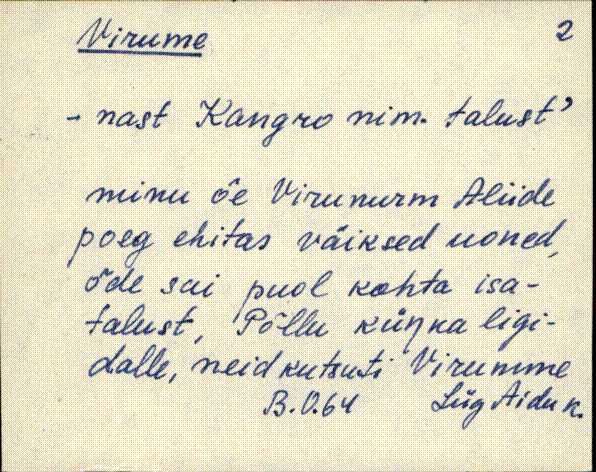 Virume 2
- nast Kangro nim. talust'
minu õe Virunurm Aliide
poeg ehitas väiksed uoned,
õde sai puol kohta isa-
talust, Põllu küŋka ligi-
dalle, neid kutsuti Virumme
B.O.64 Lüg Aidu k.